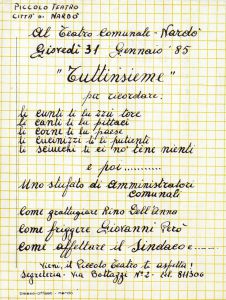 PICCOLO TEATRO
CITTA' DI NARDO'
Al Teatro Comunale - Nardò
Giovedì 31 Gennaio '85
"Tuttinsieme"
per ricordare:
li cunti ti lu zzii tore
li canti ti lu pittaci
li corni ti lu paese
li cucinizzi ti li putienti
li sciuechi ti ci no' tène nienti
e poi
Uno stufato di amministratori
comunali
Come grattugiare Rino Dell'Anna
Come friggere Giovanni Però
Come affettare il Sindaco e
Vieni, il Piccolo Teatro ti aspetta!
Segreteria - Via Bottazzi N° 2 - tel. 811306